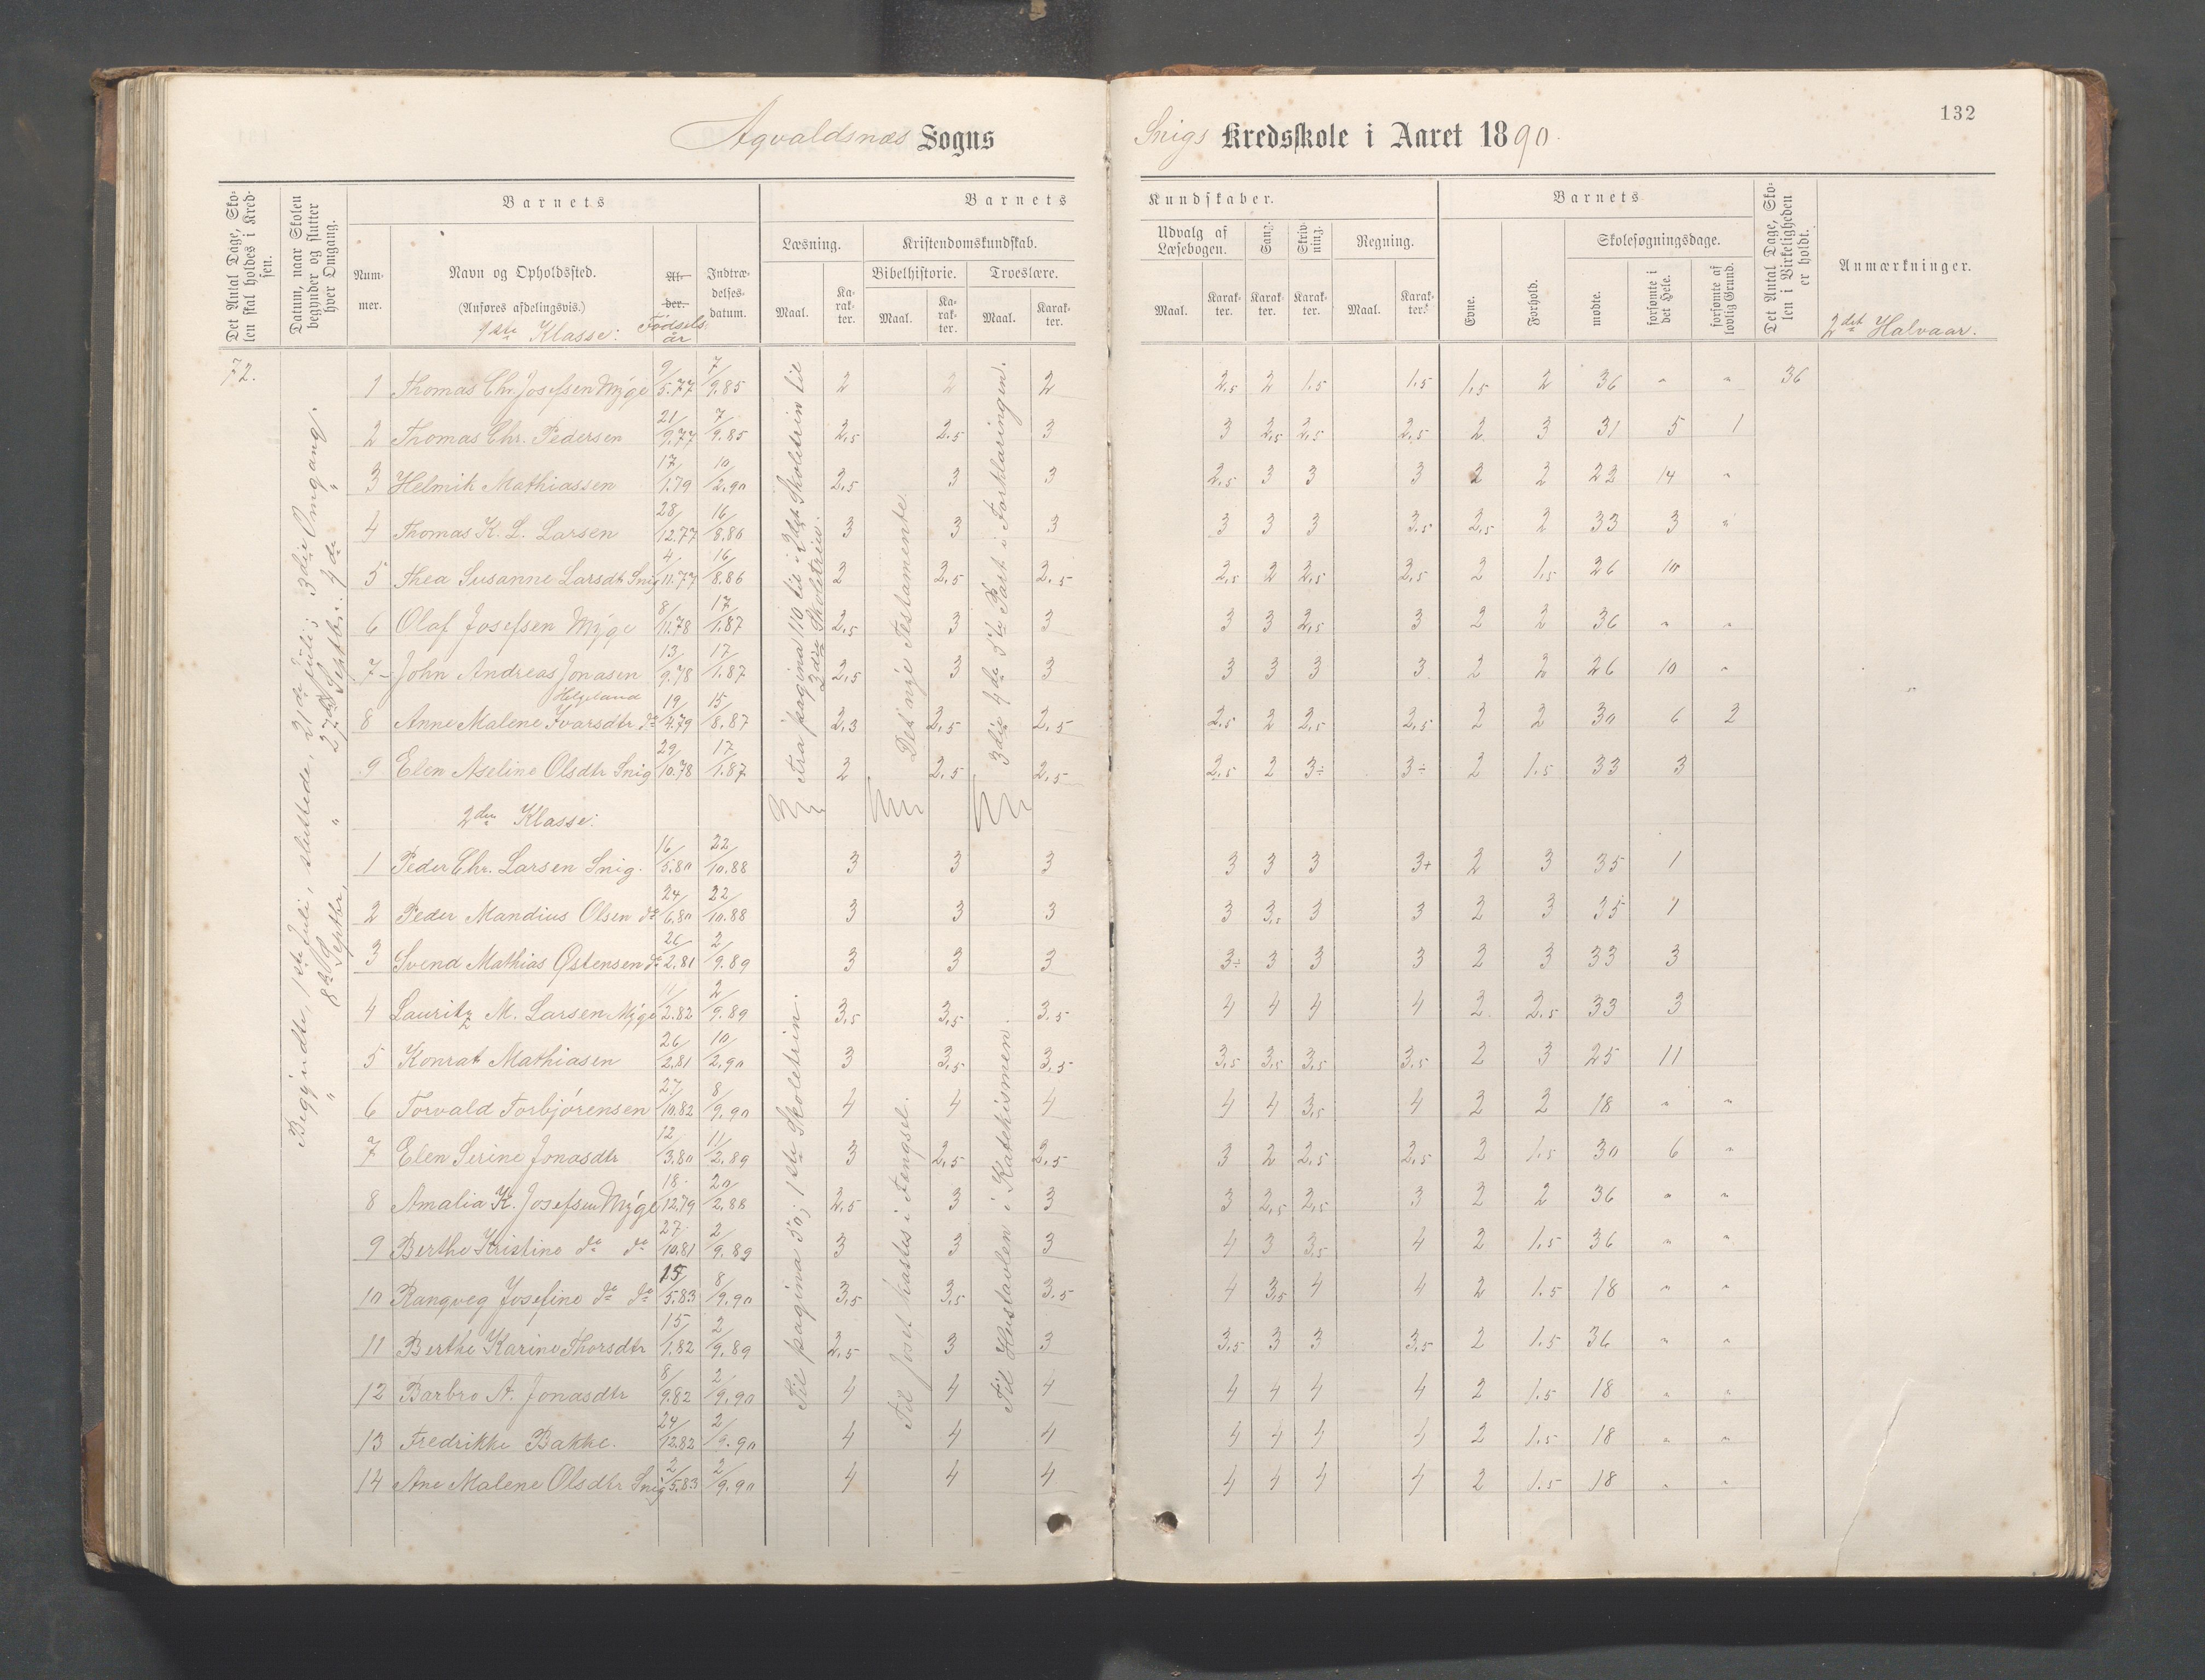 132
Agvaldsnæs Sogns
Snigs Kredsskole i Aaret 1890.
Det Antal Dage, Skolen skal holdes i Kredsen.
Datum, naar Skolen begynder og slutter hver Omgang.
Barnets
Nummer.
Navn og Opholdssted.
(Anføres afdelingsvis.)
1ste Klasse:
Alder.
Fødselsår
Indtrædelsesdatum.
Barnets
Læsning.
Kristendomskundskab.
Bibelhistorie.
Troeslære.
Maal.
Karakter.
Maal.
Karakter.
Maal.
Karakter.
Kundskaber.
Udvalg af Læsebogen.
Sang.
Skrivning.
Regning.
Maal.
Karakter.
Karakter.
Karakter.
Maal.
Karakter.
Barnets
Evne.
Forhold.
Skolesøgningsdage.
mødte.
forsømte i det Hele.
forsømte af lovlig Grund.
Det Antal Dage, Skolen i Virkeligheden er holdt.
Anmærkninger.
2det Halvaar.
72.
Begyndte, 1ste Juli, sluttede, 21de Juli; 3die Omgang.
" 8de Septbr, " 27de Septbr. 4de "
Fra pagina 110 til i 3die Skoletrin til
3die Skoletrin.
Det nye Testamente.
3die 4de 5te Part i Forklaringen.
1 Thomas Chr. Josefsen Myge 9/5.77 7/9.85 2 2 2 2,5 2 1,5 1,5 1,5 2 36 " " 36
2 Thomas Chr. Pedersen 21/9.77 7/9.85 2,5 2,5 3 3 2,5 2,5 2,5 2 3 31 5 1
3 Helmik Mathiassen 17/1.79 10/2.90 2,5 3 3 2,5 3 3 3 2 2 22 14 "
4 Thomas K. L. Larsen 28/12.77 16/8.86 3 3 3 3 3 3 3,5 2,5 2 33 3 "
5 Thea Susanne Larsdt Snig 4/11.77 16/8.86 2 2,5 2,5 2,5 2 2,5 2,5 2 1,5 26 10
6 Olaf Josefsen Myge 8/11.78 17/1.87 2,5 3 3 3 3 2,5 3 2 2 36 " "
7 John Andreas Jonasen 13/9.78 17/1.87 2,5 3 3 3 3 3 3 2 2 26 10 "
Helgeland
8 Anne Malene Ivarsdtr do 19/4.79 15/8.87 2,3 2,5 2,5 2,5 2 2,5 2,5 2 2 30 6 2
9 Elen Aseline Olsdtr Snig 29/10.78 17/1.87 2 2,5 2,5 2,5 2 3÷ 3÷ 2 1.5 33 3
2den Klasse:
Til pagina 50; 1ste Skoletrin.
Til Josef kastes i Fengsel.
Til Hustavlen i Katekismen.
1 Peder Chr. Larsen Snig. 16/5.80 22/10.88 3 3 3 3 3 3 3+ 2 3 35 1
2 Peder Mandius Olsen do 24/6.80 22/10.88 3 3 3 3 3,5 3 3 2 3 35 1
3 Svend Mathias Østensen do 26/2.81 2/9.89 3 3 3 3÷ 3 3 3 2 3 33 3
4 Lauritz M. Larsen Myge 11/2.82 2/9.89 3,5 3,5 3.5 4 4 4 4 2 2.5 33 3
5 Konrat Mathiasen 26/2.81 10/2.90 3 3,5 3,5 3,5 3,5 3,5 3,5 2 3 25 11
6 Torvald Torbjørensen 27/10.82 8/9.90 4 4 4 4 4 3,5 4 2 2 18 " "
7 Elen Serine Jonasdtr 12/3.80 11/2.89 3 2,5 2,5 3 2 2,5 2,5 2 1.5 30 6 "
8 Amalia K. Josefsen Myge 18/12.79 20/2.88 2,5 3 3 3 2,5 2,5 3 2 2 36 " "
9 Berthe Kristine do do 27/10.81 2/9.89 3 3 3 4 3 3,5 4 2 1.5 36 " "
10 Rangveg Josefine do do 15/5.83 8/9.90 3,5 3,5 3,5 4 3,5 4 4 2 1.5 18 " "
11 Berthe Karine Thorsdtr 15/1.82 2/9.89 2,5 3 3 3,5 3 3 3,5 2 1.5 36 " "
12 Barbro A. Jonasdtr 8/9.82 2/9.90 4 4 4 4 4 4 4 2 1.5 18 " "
13 Fredrikke Bakke. 24/12.82 2/9.90 4 4 4 4 4 4 4 2 1.5 18 " "
14 Ane Malene Olsdtr Snig 2/5.83 2/9.90 4 4 4 4 4 4 4 2 1.5 18 " "